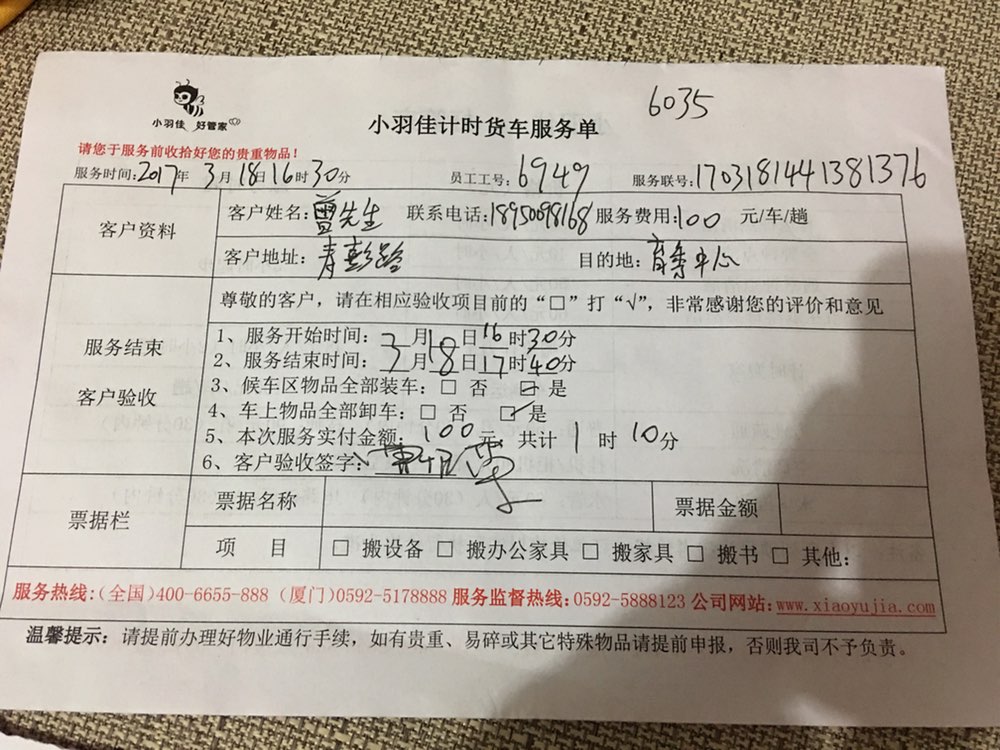 6035
小羽佳 好管家
小羽佳计时货车服务单
请您于服务前收拾好您的贵重物品！
服务时间：2017年 3月18日16时30分 员工工号：6949 服务联号：1703181441381376
客户资料
客户姓名：曾先生 联系电话：18950098168 服务费用：100 元/车/趟
客户地址：青 路 目的地：中心
服务结束
客户验收
尊敬的客户，请在相应验收项目前的“□”打“√”，非常感谢您的评价和意见
1、服务开始时间：3月18日16时30分
2、服务结束时间：3月18日17时40分
3、候车区物品全部装车：□ 否 ☑ 是
4、车上物品全部卸车：□ 否 ☑ 是
5、本次服务实付金额：100元 共计 1 时 10分
6、客户验收签字：
票据栏
票据名称 票据金额
项 目 □ 搬设备 □ 搬办公家具 □ 搬家具 □ 搬书 □ 其他：
服务热线：(全国)400-6655-888 (厦门)0592-5178888 服务监督热线：0592-5888123 公司网站：www.xiaoyujia.com
温馨提示：请提前办理好物业通行手续，如有贵重、易碎或其它特殊物品请提前申报，否则我司不予负责。